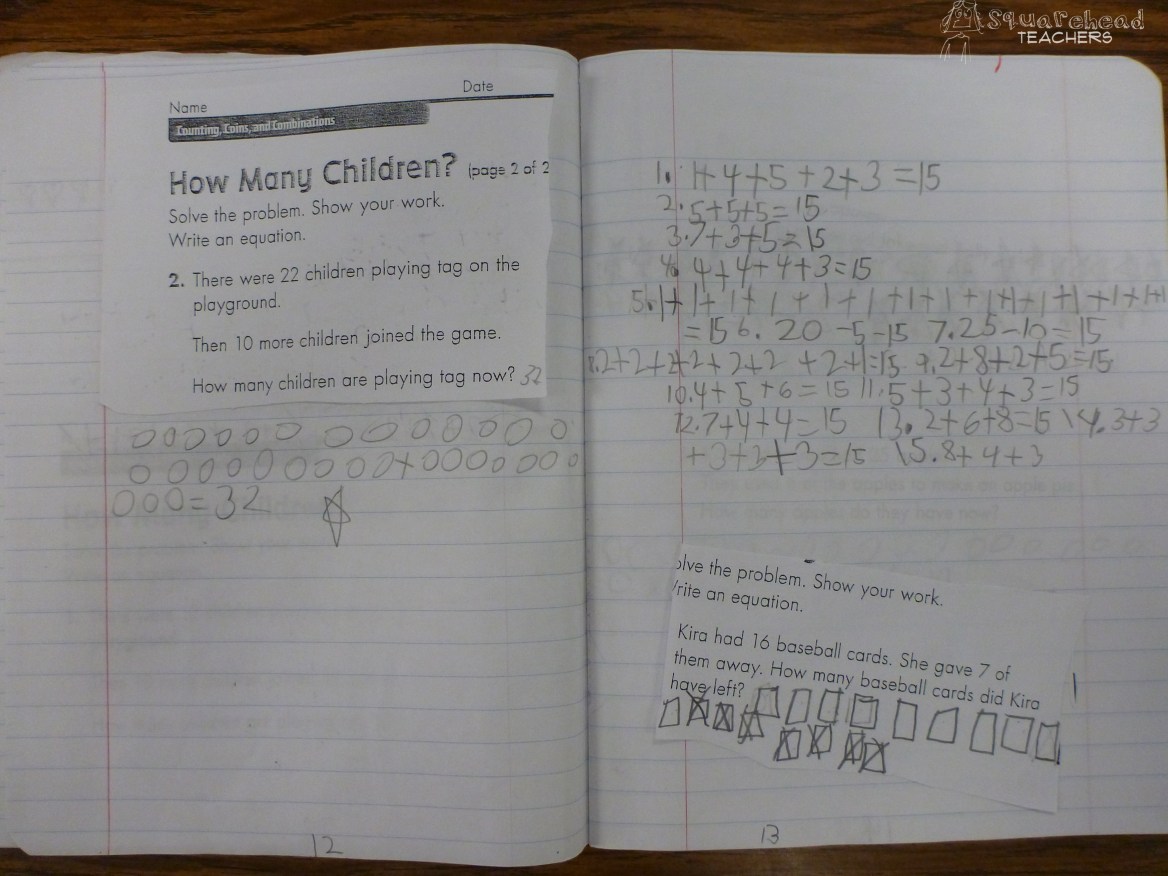 Squarehead
TEACHERS
Name
Date
Counting, Coins, and Combinations
How Many Children? (page 2 of 2
Solve the problem. Show your work.
Write an equation.
2. There were 22 children playing tag on the
playground.
Then 10 more children joined the game.
How many children are playing tag now? 32
+
= 32
12
1. 1+4+5+2+3=15
2. 5+5+5=15
3. 7+3+5=15
4. 4+4+4+3=15
5. 1+1+1+1+1+1+1+1+1+1+1+1+1+1+1
=15 6. 20-5-15 7. 25-10=15
8. 2+2+2+2+2+2+2+1=15 9. 2+8+2+5=15
10. 4+5+6=15 11. 5+3+4+3=15
12. 7+4+4=15 13. 2+6+8=15 14. 3+3
+3+3+3=15 15. 8+4+3
olve the problem. Show your work.
rite an equation.
Kira had 16 baseball cards. She gave 7 of
them away. How many baseball cards did Kira
have left?
13